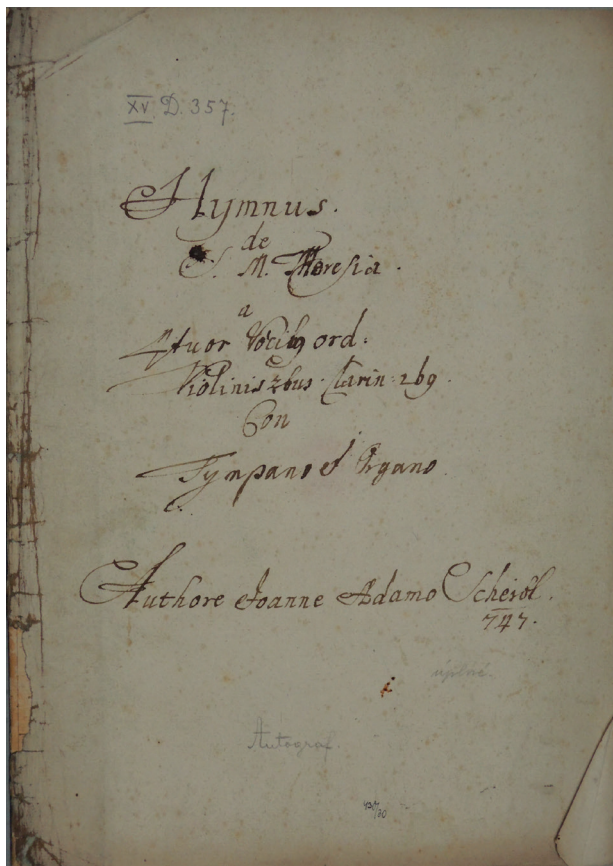 XV D. 357.
Hymnus.
de
S. M. Theresia.
a
4tuor Vocibg ord:
Violinis 2bus. Clarin: 2bg.
Con
Tympano et Organo
Authore Joanne Adamo Scheibl.
747.
úplné.
Autograf.